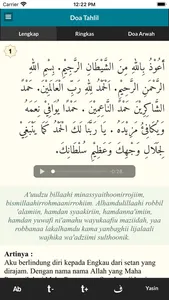 12:22 PM
Doa Tahlil
Lengkap Ringkas Doa Arwah
1
أَعُوْذُ بِاللهِ مِنَ الشَّيْطَانِ الرَّجِيْمِ. بِسْمِ اللهِ
الرَّحْمَنِ الرَّحِيْمِ. الْحَمْدُ لِلَّهِ رَبِّ الْعَالَمِيْنَ. حَمْدَ
الشَّاكِرِيْنَ حَمْدَ النَّاعِمِيْنَ. حَمْدًا يُوَافِيْ نِعَمَهُ
وَيُكَافِئُ مَزِيْدَهُ. يَا رَبَّنَا لَكَ الْحَمْدُ كَمَا يَنْبَغِيْ
لِجَلَالِ وَجْهِكَ وَعَظِيْمِ سُلْطَانِكَ.
A'uudzu billaahi minassyaithoonirrojiim,
bismillaahirrohmaanirrohiim. Alhamdulillaahi robbil
'alamiin, hamdan syaakiriin, hamdanna'imiin,
hamdan yuwafi ni'amahu wayukaafiu maziidah, yaa
robbanaa lakalhamdu kama yanbaghii lijalaali
wajhika wa'adziimi sulthoonik.
Artinya :
Aku berlindung diri kepada Engkau dari setan yang
dirajam. Dengan nama nama Allah yang Maha
Ab t- t+ Yasin